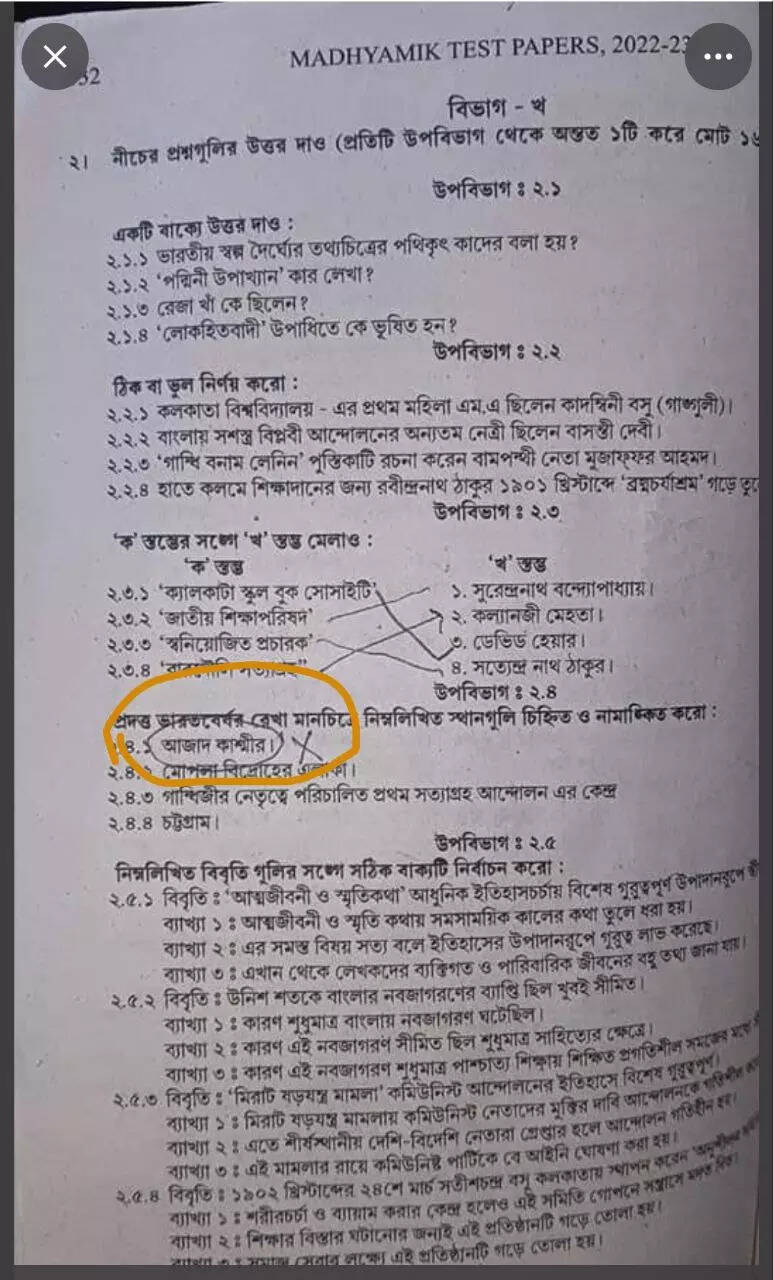 32
MADHYAMIK TEST PAPERS, 2022-23
বিভাগ - খ
২। নীচের প্রশ্নগুলির উত্তর দাও (প্রতিটি উপবিভাগ থেকে অন্তত ১টি করে মোট ১৬
উপবিভাগ : ২.১
একটি বাক্যে উত্তর দাও :
২.১.১ ভারতীয় স্বল্প দৈর্ঘ্যের তথ্যচিত্রের পথিকৃৎ কাদের বলা হয়?
২.১.২ ‘পদ্মিনী উপাখ্যান’ কার লেখা?
২.১.৩ রেজা খাঁ কে ছিলেন?
২.১.৪ ‘লোকহিতবাদী’ উপাধিতে কে ভূষিত হন?
উপবিভাগ : ২.২
ঠিক বা ভুল নির্ণয় করো :
২.২.১ কলকাতা বিশ্ববিদ্যালয় - এর প্রথম মহিলা এম.এ ছিলেন কাদম্বিনী বসু (গাঙ্গুলী)।
২.২.২ বাংলায় সশস্ত্র বিপ্লবী আন্দোলনের অন্যতম নেত্রী ছিলেন বাসন্তী দেবী।
২.২.৩ ‘গান্ধি বনাম লেনিন’ পুস্তিকাটি রচনা করেন বামপন্থী নেতা মুজাফ্ফর আহমদ।
২.২.৪ হাতে কলমে শিক্ষাদানের জন্য রবীন্দ্রনাথ ঠাকুর ১৯০১ খ্রিস্টাব্দে ‘ব্রহ্মচর্যাশ্রম’ গড়ে তুলে
উপবিভাগ : ২.৩
‘ক’ স্তম্ভের সঙ্গে ‘খ’ স্তম্ভ মেলাও :
‘ক’ স্তম্ভ ‘খ’ স্তম্ভ
২.৩.১ ‘ক্যালকাটা স্কুল বুক সোসাইটি’ ১. সুরেন্দ্রনাথ বন্দ্যোপাধ্যায়।
২.৩.২ ‘জাতীয় শিক্ষাপরিষদ’ ২. কল্যানজী মেহতা।
২.৩.৩ ‘স্বনিয়োজিত প্রচারক’ ৩. ডেভিড হেয়ার।
২.৩.৪ ‘বারদৌলি সত্যাগ্রহ” ৪. সত্যেন্দ্র নাথ ঠাকুর।
উপবিভাগ : ২.৪
প্রদত্ত ভারতবর্ষের রেখা মানচিত্রে নিম্নলিখিত স্থানগুলি চিহ্নিত ও নামাঙ্কিত করো :
২.৪.১ আজাদ কাশ্মীর।
২.৪.২ মোপলা বিদ্রোহের এলাকা।
২.৪.৩ গান্ধিজীর নেতৃত্বে পরিচালিত প্রথম সত্যাগ্রহ আন্দোলন এর কেন্দ্র
২.৪.৪ চট্টগ্রাম।
উপবিভাগ : ২.৫
নিম্নলিখিত বিবৃতি গুলির সঙ্গে সঠিক বাক্যটি নির্বাচন করো :
২.৫.১ বিবৃতি : ‘আত্মজীবনী ও স্মৃতিকথা’ আধুনিক ইতিহাসচর্চায় বিশেষ গুরুত্বপূর্ণ উপাদানরূপে
ব্যাখ্যা ১ : আত্মজীবনী ও স্মৃতি কথায় সমসাময়িক কালের কথা তুলে ধরা হয়।
ব্যাখ্যা ২ : এর সমস্ত বিষয় সত্য বলে ইতিহাসের উপাদানরূপে গুরুত্ব লাভ করেছে।
ব্যাখ্যা ৩ : এখান থেকে লেখকদের ব্যক্তিগত ও পারিবারিক জীবনের বহু তথ্য জানা যায়।
২.৫.২ বিবৃতি : উনিশ শতকে বাংলার নবজাগরণের ব্যাপ্তি ছিল খুবই সীমিত।
ব্যাখ্যা ১ : কারণ শুধুমাত্র বাংলায় নবজাগরণ ঘটেছিল।
ব্যাখ্যা ২ : কারণ এই নবজাগরণ সীমিত ছিল শুধুমাত্র সাহিত্যের ক্ষেত্রে।
ব্যাখ্যা ৩ : কারণ এই নবজাগরণ শুধুমাত্র পাশ্চাত্য শিক্ষায় শিক্ষিত প্রগতিশীল সমাজের মধ্যে
২.৫.৩ বিবৃতি : ‘মিরাট ষড়যন্ত্র মামলা’ কমিউনিস্ট আন্দোলনের ইতিহাসে বিশেষ গুরুত্বপূর্ণ।
ব্যাখ্যা ১ : মিরাট ষড়যন্ত্র মামলায় কমিউনিস্ট নেতাদের মুক্তির দাবি আন্দোলনকে গতিশীল
ব্যাখ্যা ২ : এতে শীর্ষস্থানীয় দেশি-বিদেশি নেতারা গ্রেপ্তার হলে আন্দোলন গতিহীন হয়।
ব্যাখ্যা ৩ : এই মামলার রায়ে কমিউনিষ্ট পার্টিকে বে আইনি ঘোষণা করা হয়।
২.৫.৪ বিবৃতি : ১৯০২ খ্রিস্টাব্দের ২৪শে মার্চ সতীশচন্দ্র বসু কলকাতায় স্থাপন করেন ‘অনুশীলন
ব্যাখ্যা ১ : শরীরচর্চা ও ব্যায়াম করার কেন্দ্র হলেও এই সমিতি গোপনে সন্ত্রাসে মদত দিত।
ব্যাখ্যা ২ : শিক্ষার বিস্তার ঘটানোর জন্যই এই প্রতিষ্ঠানটি গড়ে তোলা হয়।
ব্যাখ্যা ৩ : সমাজ সেবার লক্ষ্যে এই প্রতিষ্ঠানটি গড়ে তোলা হয়।